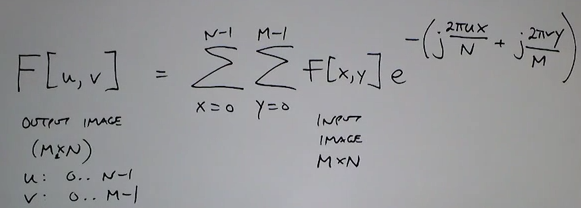 F[u,v] = \sum_{x=0}^{N-1} \sum_{y=0}^{M-1} f[x,y] e^{-(j\frac{2πux}{N} + j\frac{2πvy}{M})}
OUTPUT IMAGE
(M×N)
u: 0.. N-1
v: 0.. M-1
INPUT
IMAGE
M×N